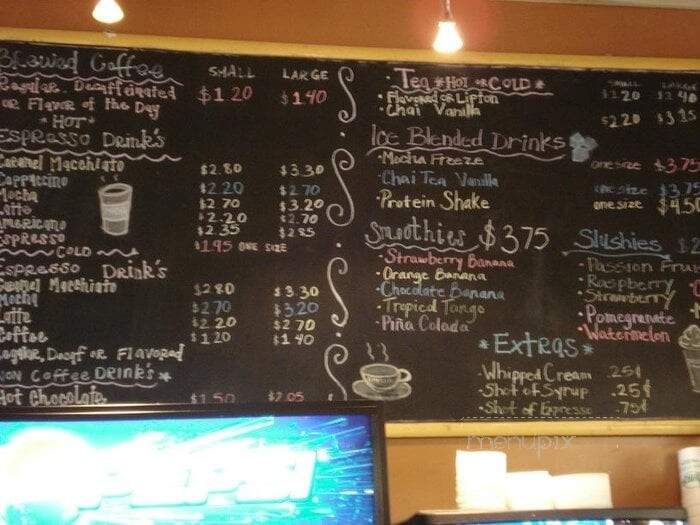 Brewed Coffee SMALL LARGE
Regular, Decaffeinated $1.20 $1.40
or Flavor of the Day
* HOT *
ESPRESSO Drink's
Caramel Macchiato $2.80 $3.30
Cappuccino $2.20 $2.70
Mocha $2.70 $3.20
Latte $2.20 $2.70
Americano $2.35 $2.85
Espresso $1.95 ONE SIZE
COLD
ESPRESSO Drink's
Caramel Macchiato $2.80 $3.30
Mocha $2.70 $3.20
Latte $2.20 $2.70
Coffee $1.20 $1.40
Regular, Decaf or Flavored
NON Coffee DRINK's *
Hot Chocolate $1.50 $2.05
• Tea *HOT or COLD * SMALL LARGE
• Flavored or Lipton
• Chai Vanilla $2.20
Ice Blended Drinks
• Mocha Freeze one size $3.75
• Chai Tea Vanilla one size
• Protein Shake one size $4.50
Smoothies $3.75
• Strawberry Banana
• Orange Banana
• Chocolate Banana
• Tropical Tango
• Piña Colada
Slushies
• Passion Fruit
• Raspberry
• Strawberry
• Pomegranate
• Watermelon
* Extras *
• Whipped Cream .25¢
• Shot of Syrup .25¢
• Shot of Espresso .75¢
menupix
PEPSI